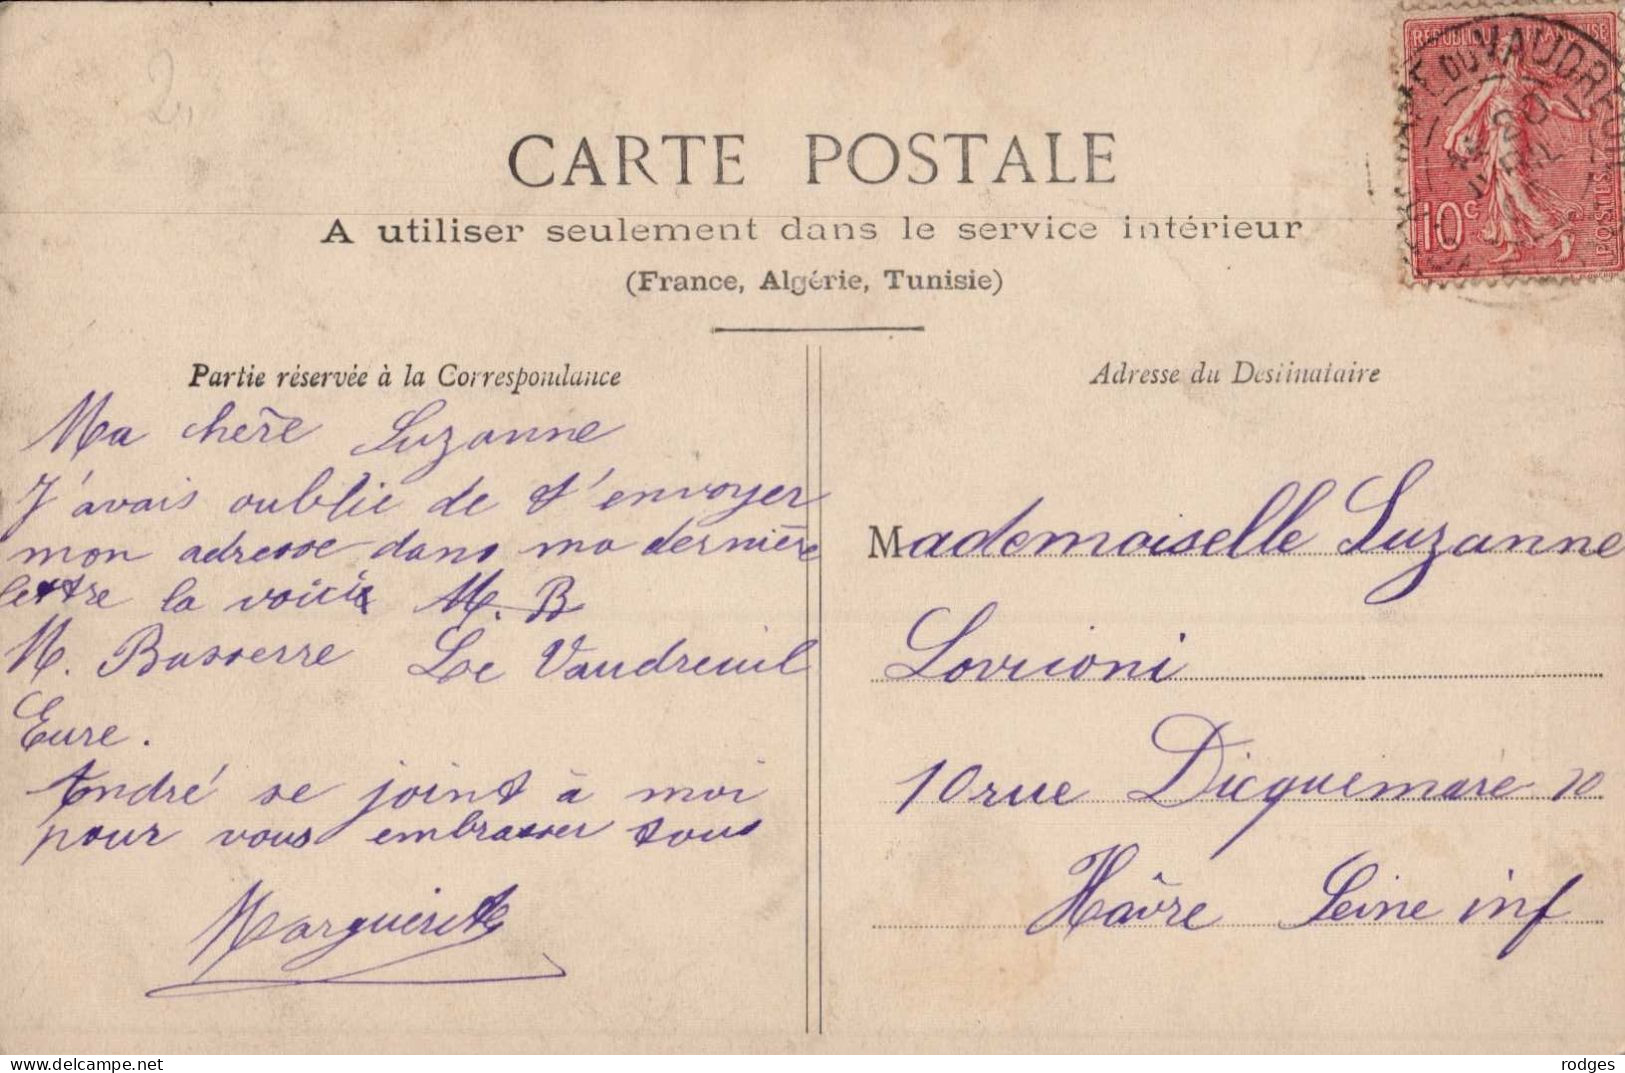 2.
CARTE POSTALE
A utiliser seulement dans le service intérieur
(France, Algérie, Tunisie)
REPUBLIQUE FRANÇAISE
10c
POSTES
DU VAUDREUIL
20
AVRIL
Partie réservée à la Correspondance
Ma chère Suzanne
J'avais oublie de t'envoyer
mon adresse dans ma dernière
lettre la voici M. B
M. Basserre Le Vaudreuil
Eure.
André se joint à moi
pour vous embrasser tous
Marguerite
Adresse du Destinataire
Mademoiselle Suzanne
Lovrioni
10 rue Dicquemare 10
Hâvre Seine inf
www.delcampe.net
rodges